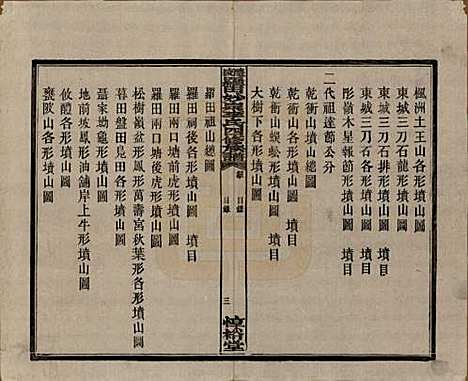 楓洲土王山各形墳山圖
東城三刀石各形龍墳山圖
東城三刀石排形墳山圖
東城三刀石各形 墳目
彤嶺木星報節形 墳目
二代祖達節公分
乾衝山墳山總圖
乾衝山蜈蚣形墳山圖
乾衝山各形 墳目
大樹下各形墳山圖
目錄
目錄
三
惇裕堂
羅田祖山總圖
羅田祠後各形墳山圖 墳目
羅田兩口塘前虎形墳山圖
羅田兩口塘後虎形墳山圖
松樹嶺盆形鳳形萬壽宮秋葉形各形墳山圖
暮田盤田見田各形墳山圖
聶家坳龜形墳山圖
地前坡鳳形油舖岸上牛形墳山圖
甕陂山各形墳山圖